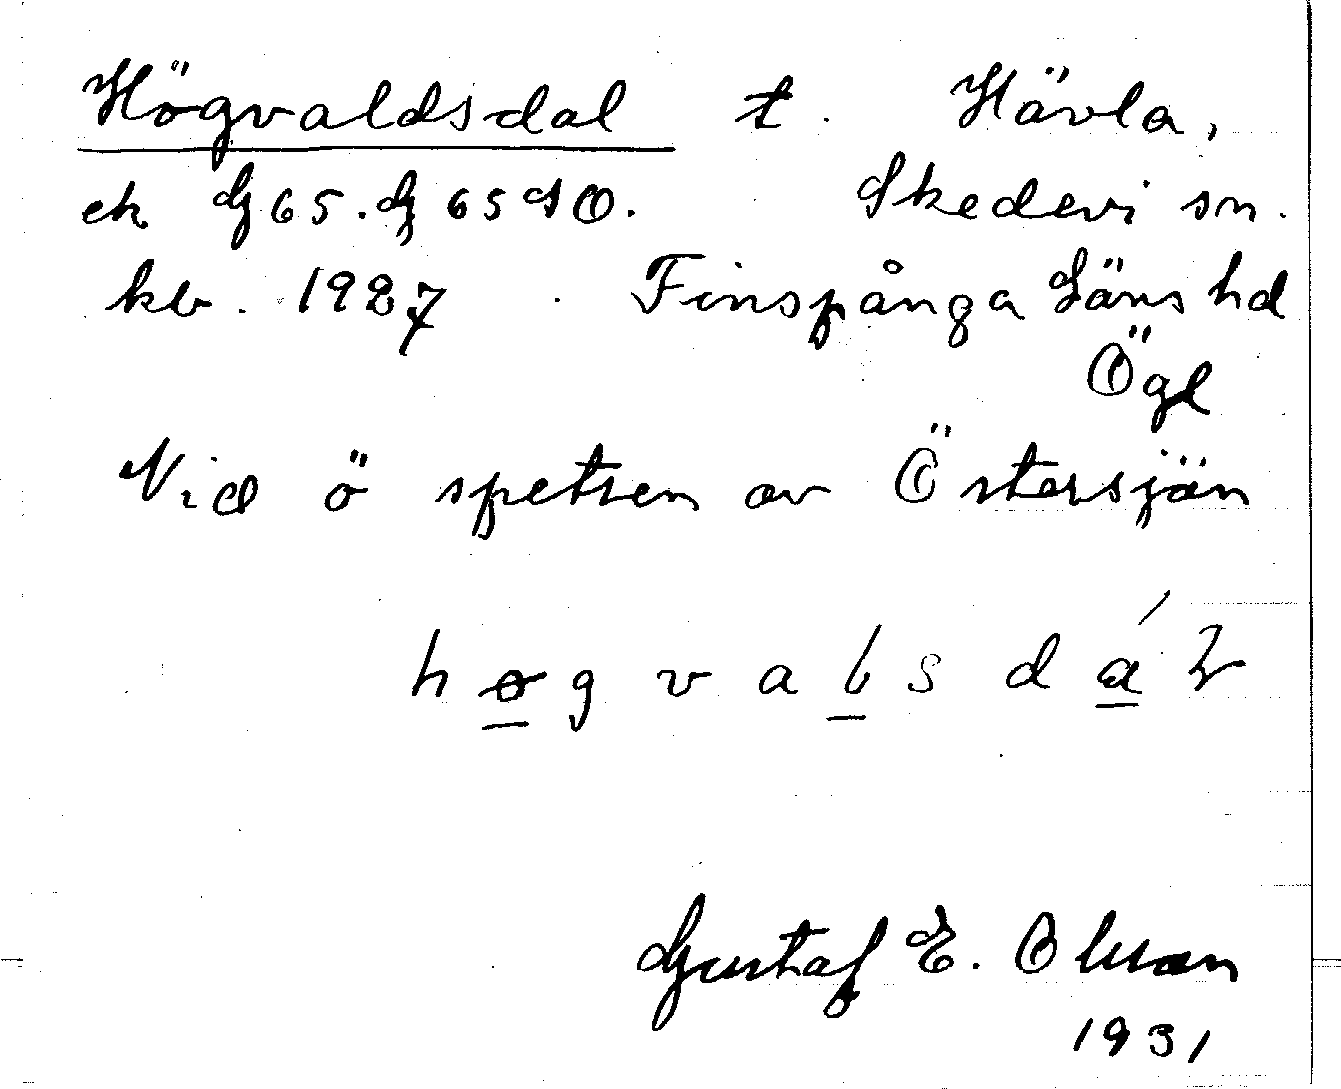 Högvaldsdal t. Hävla,
ek G65.G65SO. Skedevi sn.
kb. 1927 Finspånga Läns hd
Ögl
Vid ö spetsen av Östersjön
Gustaf E. Olsson
1931